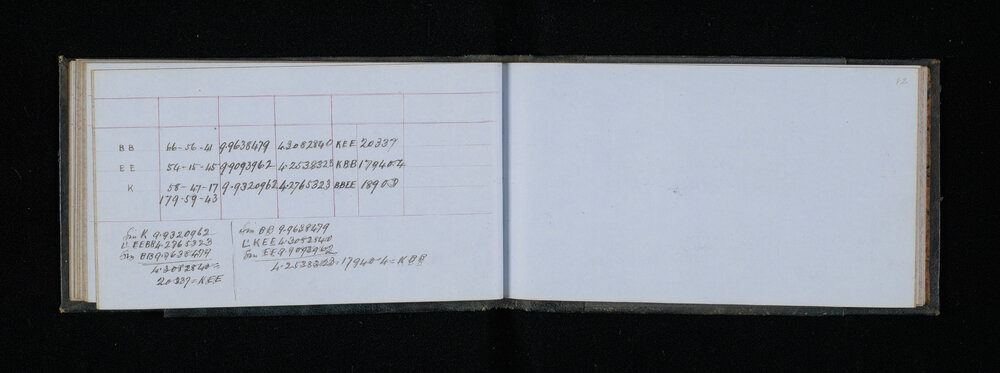 BB 66-56-41 9.9638479 4.3082840 KEE 20337
EE 54-15-45 9.9093962 4.2538323 KBB 17940.4
K 58-47-17 9.9320962 4.2765323 BBEE
179-59-43
Sin K 9.9320962
L' KEBB 4.2765323
Sin BB 9.9638479
4.3082840 =
20.337 = KEE
Sin BB 9.9638479
L' KEE 4.3082840
Sin EE 9.9093962
= 17940.4 = KBB
52